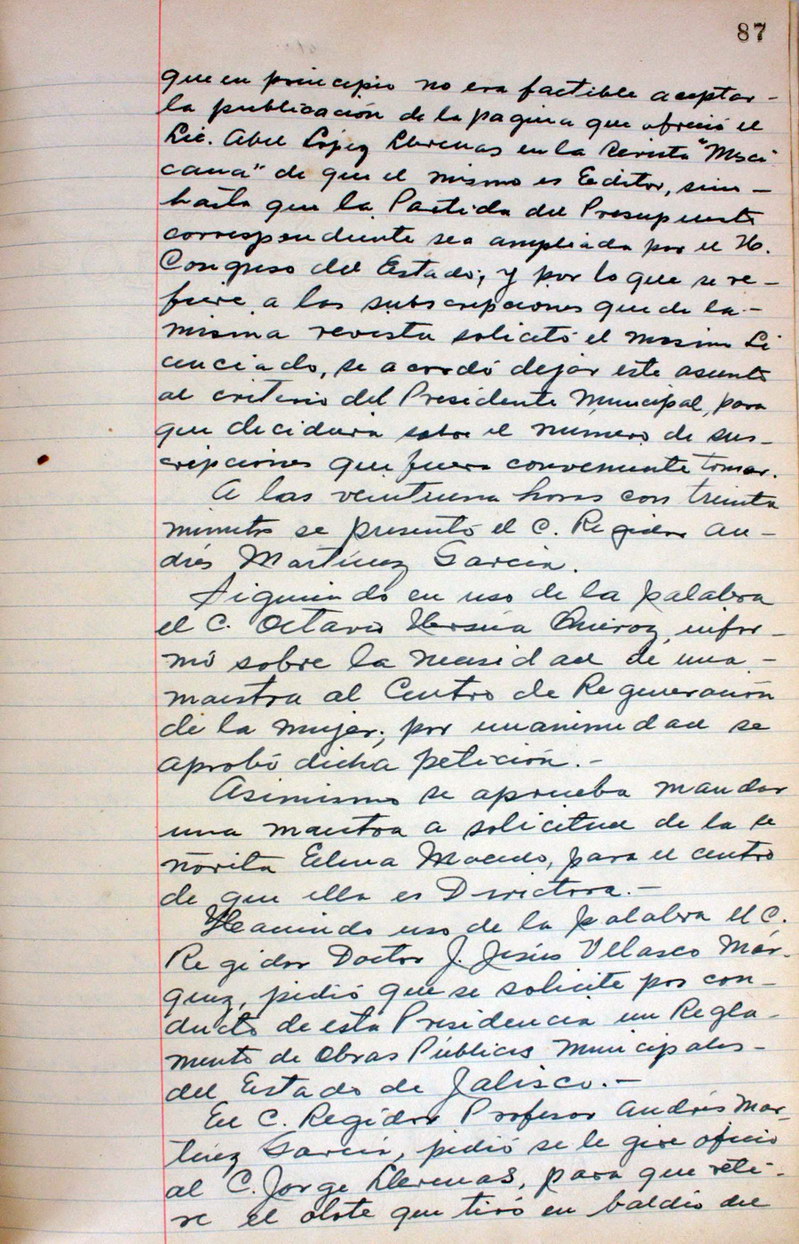 87
que en principio no era factible aceptar -
la publicación de la pagina que ofreció el
Lic. Abel López Llerenas en la Revista "Mexi
cana" de que el mismo es Editor, sino -
hasta que la Partida del Presupuesto
correspondiente sea ampliada por el H.
Congreso del Estado; y por lo que se re -
fiere a las subscripciones que de la -
misma revista solicitó el mismo Li
cenciado, se acordó dejar este asunto
al criterio del Presidente Municipal, para
que decidiera sobre el número de sus -
cripciones que fuera conveniente tomar.
A las veintiuna horas con treinta
minutos se presentó el C. Regidor An -
drés Martínez García.
Siguiendo en uso de la palabra
el C. Octavio Quiroz, infor -
mó sobre la necesidad de una -
maestra al Centro de Regeneración
de la mujer; por unanimidad se
aprobó dicha petición. -
Asimismo se aprueba mandar
una maestra a solicitud de la se
ñorita Elena Macedo, para el centro
de que ella es Directora. -
Haciendo uso de la palabra el C.
Regidor Doctor J. Jesús Velasco Már -
quez, pidió que se solicite por con -
ducto de esta Presidencia un Regla -
mento de Obras Públicas Municipales -
del Estado de Jalisco. -
El C. Regidor Profesor Andrés Mar -
tínez García, pidió se le gire oficio
al C. Jorge Llerenas, para que reti -
re el olote que tiró en baldío del